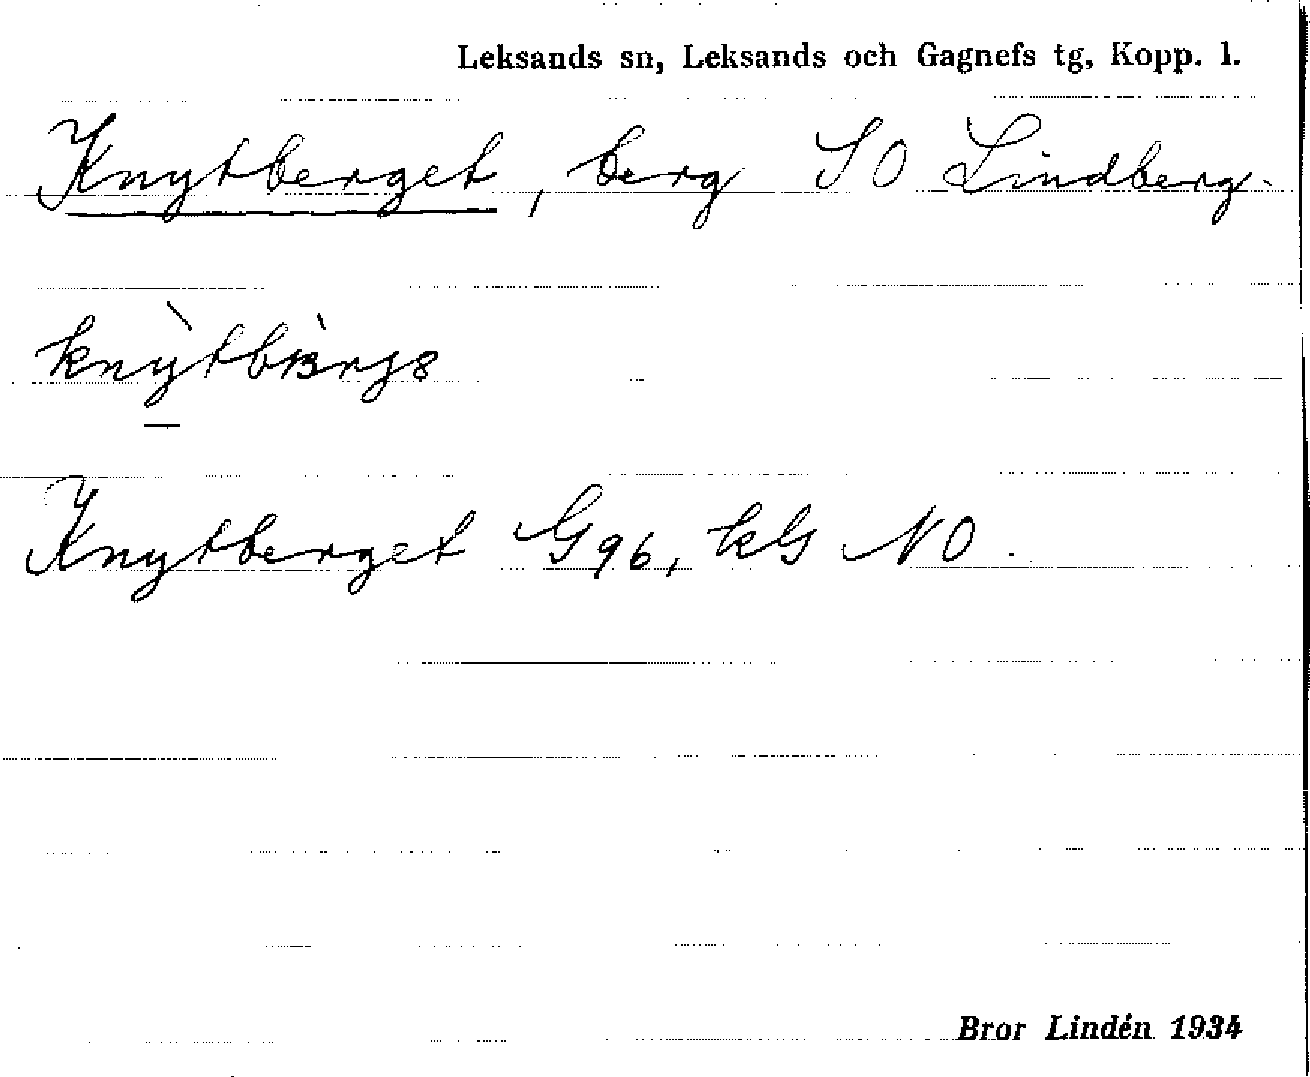 Leksands sn, Leksands och Gagnefs tg, Kopp. l.
Knytberget, berg SO Lindberg.
Knytberget G96, kG NO.
Bror Lindén 1934